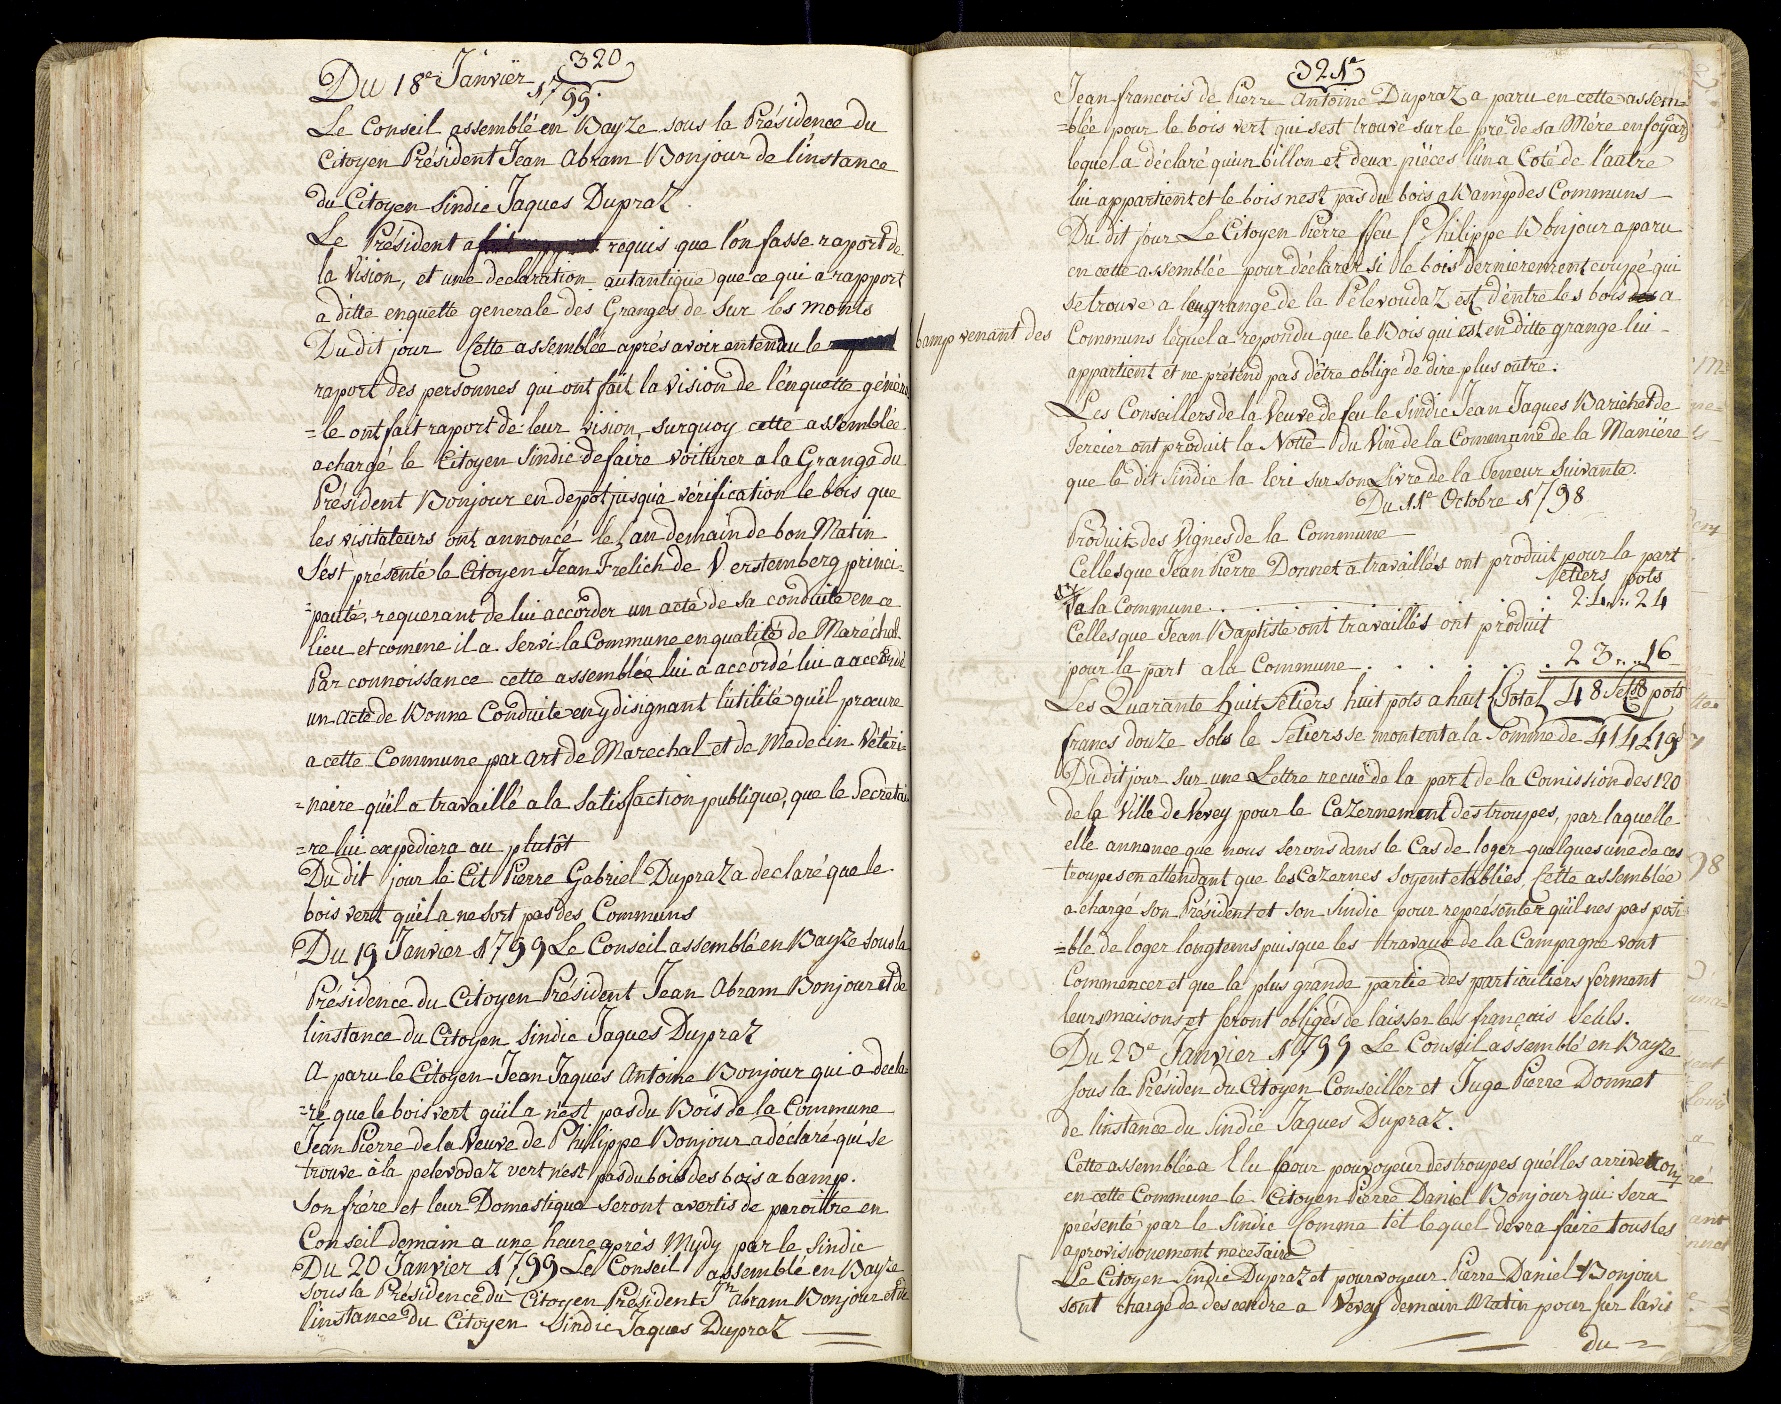 320
Du 18e Janvier 1799.
Le Conseil assemblé en Bayze sous la Présidence du
Citoyen Président Jean Abram Bonjour de l'instance
du Citoyen Sindic Jaques Dupraz.
Le Président a requis que l'on fasse raport de
la Vision, et une declaration autantique que ce qui a rapport
a ditte enquette generale des Granges de sur les monts
Du dit jour Cette assemblée aprés avoir entendu le
raport des personnes qui ont fait la vision de l'enquette généra
=le ont fait raport de leur vision surquoy cette assemblée
a chargé le Citoyen Sindic de faire voiturer a la Grange du
Président Bonjour en depot jusqu'a vérification le bois que
les visitateurs ont annoncé le landemain de bon Matin
S'est présenté le Citoyen Jean Frelich de Verstemberg princi=
=pauté, requerant de lui accorder un acte de sa conduite en ce
lieu et comme il a servi la Commune en qualité de Maréchal
Par connoissance cette assemblée lui a accordé lui a accordé
un acte de Bonne Conduite en y disignant l'utilité qu'il procure
a cette Commune par art de Marechal et de Medecin Vétéri=
=naire qu'il a travaillé a la satisfaction publique, que le Secretai
=re lui expediera au plutôt
Du dit jour le Cit Pierre Gabriel Dupraz a declaré que le
bois vert qu'il a ne sort pas des Communs
Du 19 Janvier 1799 Le Conseil assemblé en Bayze sous la
Présidence du Citoyen Président Jean Abram Bonjour et de
linstance du Citoyen Sindic Jaques Dupraz
A paru le Citoyen Jean Jaques Antoine Bonjour qui a decla=
=ré que le bois vert qu'il a n'est pas du Bois de la Commune
Jean Pierre de la Veuve de Philippe Bonjour a déclaré qui se
trouve à la pelevodaz vert nest pas du bois des bois a bamp.
Son frére et leur Domestique seront avertis de paroitre en
Conseil demain a une heure aprés Mydy par le Sindic
Du 20 Janvier 1799 Le Conseil assemblé en Bayze
sous la Présidence du Citoyen Président Jn Abram Bonjour et de
l'instance du Citoyen Sindic Jaques Dupraz
321e
Jean francois de Pierre Antoine Dupraz a paru en cette assem=
=blée pour le bois vert qui s'est trouvé sur le pré de sa Mére en foyard
lequel a déclaré qu'un billon et deux piéces l'un a Coté de l'autre
lui appartient et le bois nest pas du bois a Bamp des Communs
Du dit jour Le Citoyen Pierre ffeu Philippe Bonjour a paru
en cette assemblée pour déclarer si le bois dernierement coupé qui
se trouve a leur grange de la Pelevoudaz est d'entre les bois a
bamp venant des
Communs lequel a repondu que le Bois qui est en ditte grange lui
appartient et ne prétend pas d'être obligé de dire plus outre.
Les Conseillers de la Veuve de feu le Sindic Jean Jaques Barichet de
Tercier ont produit la Notte du Vin de la Commune de la Maniére
que le dit Sindic la Écri sur son Livre de la Teneur suivante.
Du 11e Octobre 1798
Produit des Vignes de la Commune
Celles que Jean Pierre Donnet a travaillés ont produit pour la part
Setiers pots
a la Commune . . . 24 . . 24
Celles que Jean Baptiste ont travaillés ont produit
pour la part a la Commune . . . . . 23 . . 16
Les Quarante huit Setiers huit pots a huit Total 48 Set 8 pots
francs douze Sols le Setier se montent a la Somme de 414 £ 19
Du dit jour sur une Lettre recuë de la part de la Comission des 120
de la Ville de Vevey pour le Cazernement des troupes, par laquelle
elle annonce que nous serons dans le Cas de loger quelques une de ces
troupes en attendant que les Cazernes soyent etablies, Cette assemblée
a chargé son Président et son Sindic pour représenter qu'il nes pas possi
=ble de loger longtems puisque les travaux de la Campagne vont
Commencer et que la plus grande partie des particuliers ferment
leurs maisons et seront obligés de laisser les français seuls.
Du 23e Janvier 1799 Le Conseil assemblé en Bayze
sous la Présiden du Citoyen Conseiller et Juge Pierre Donnet
de linstance du Sindic Jaques Dupraz.
Cette assemblée a Elu pour pourvoyeur des troupes qu'elles arriveron
en cette Commune le Citoyen Pierre Daniel Bonjour qui sera
présenté par le Sindic Comme têl lequel devra faire tous les
aprovisionement necesaire
Le Citoyen Sindic Dupraz et pourvoyeur Pierre Daniel Bonjour
sont chargé de descendre a Vevey demain Matin pour sur l'avis
du